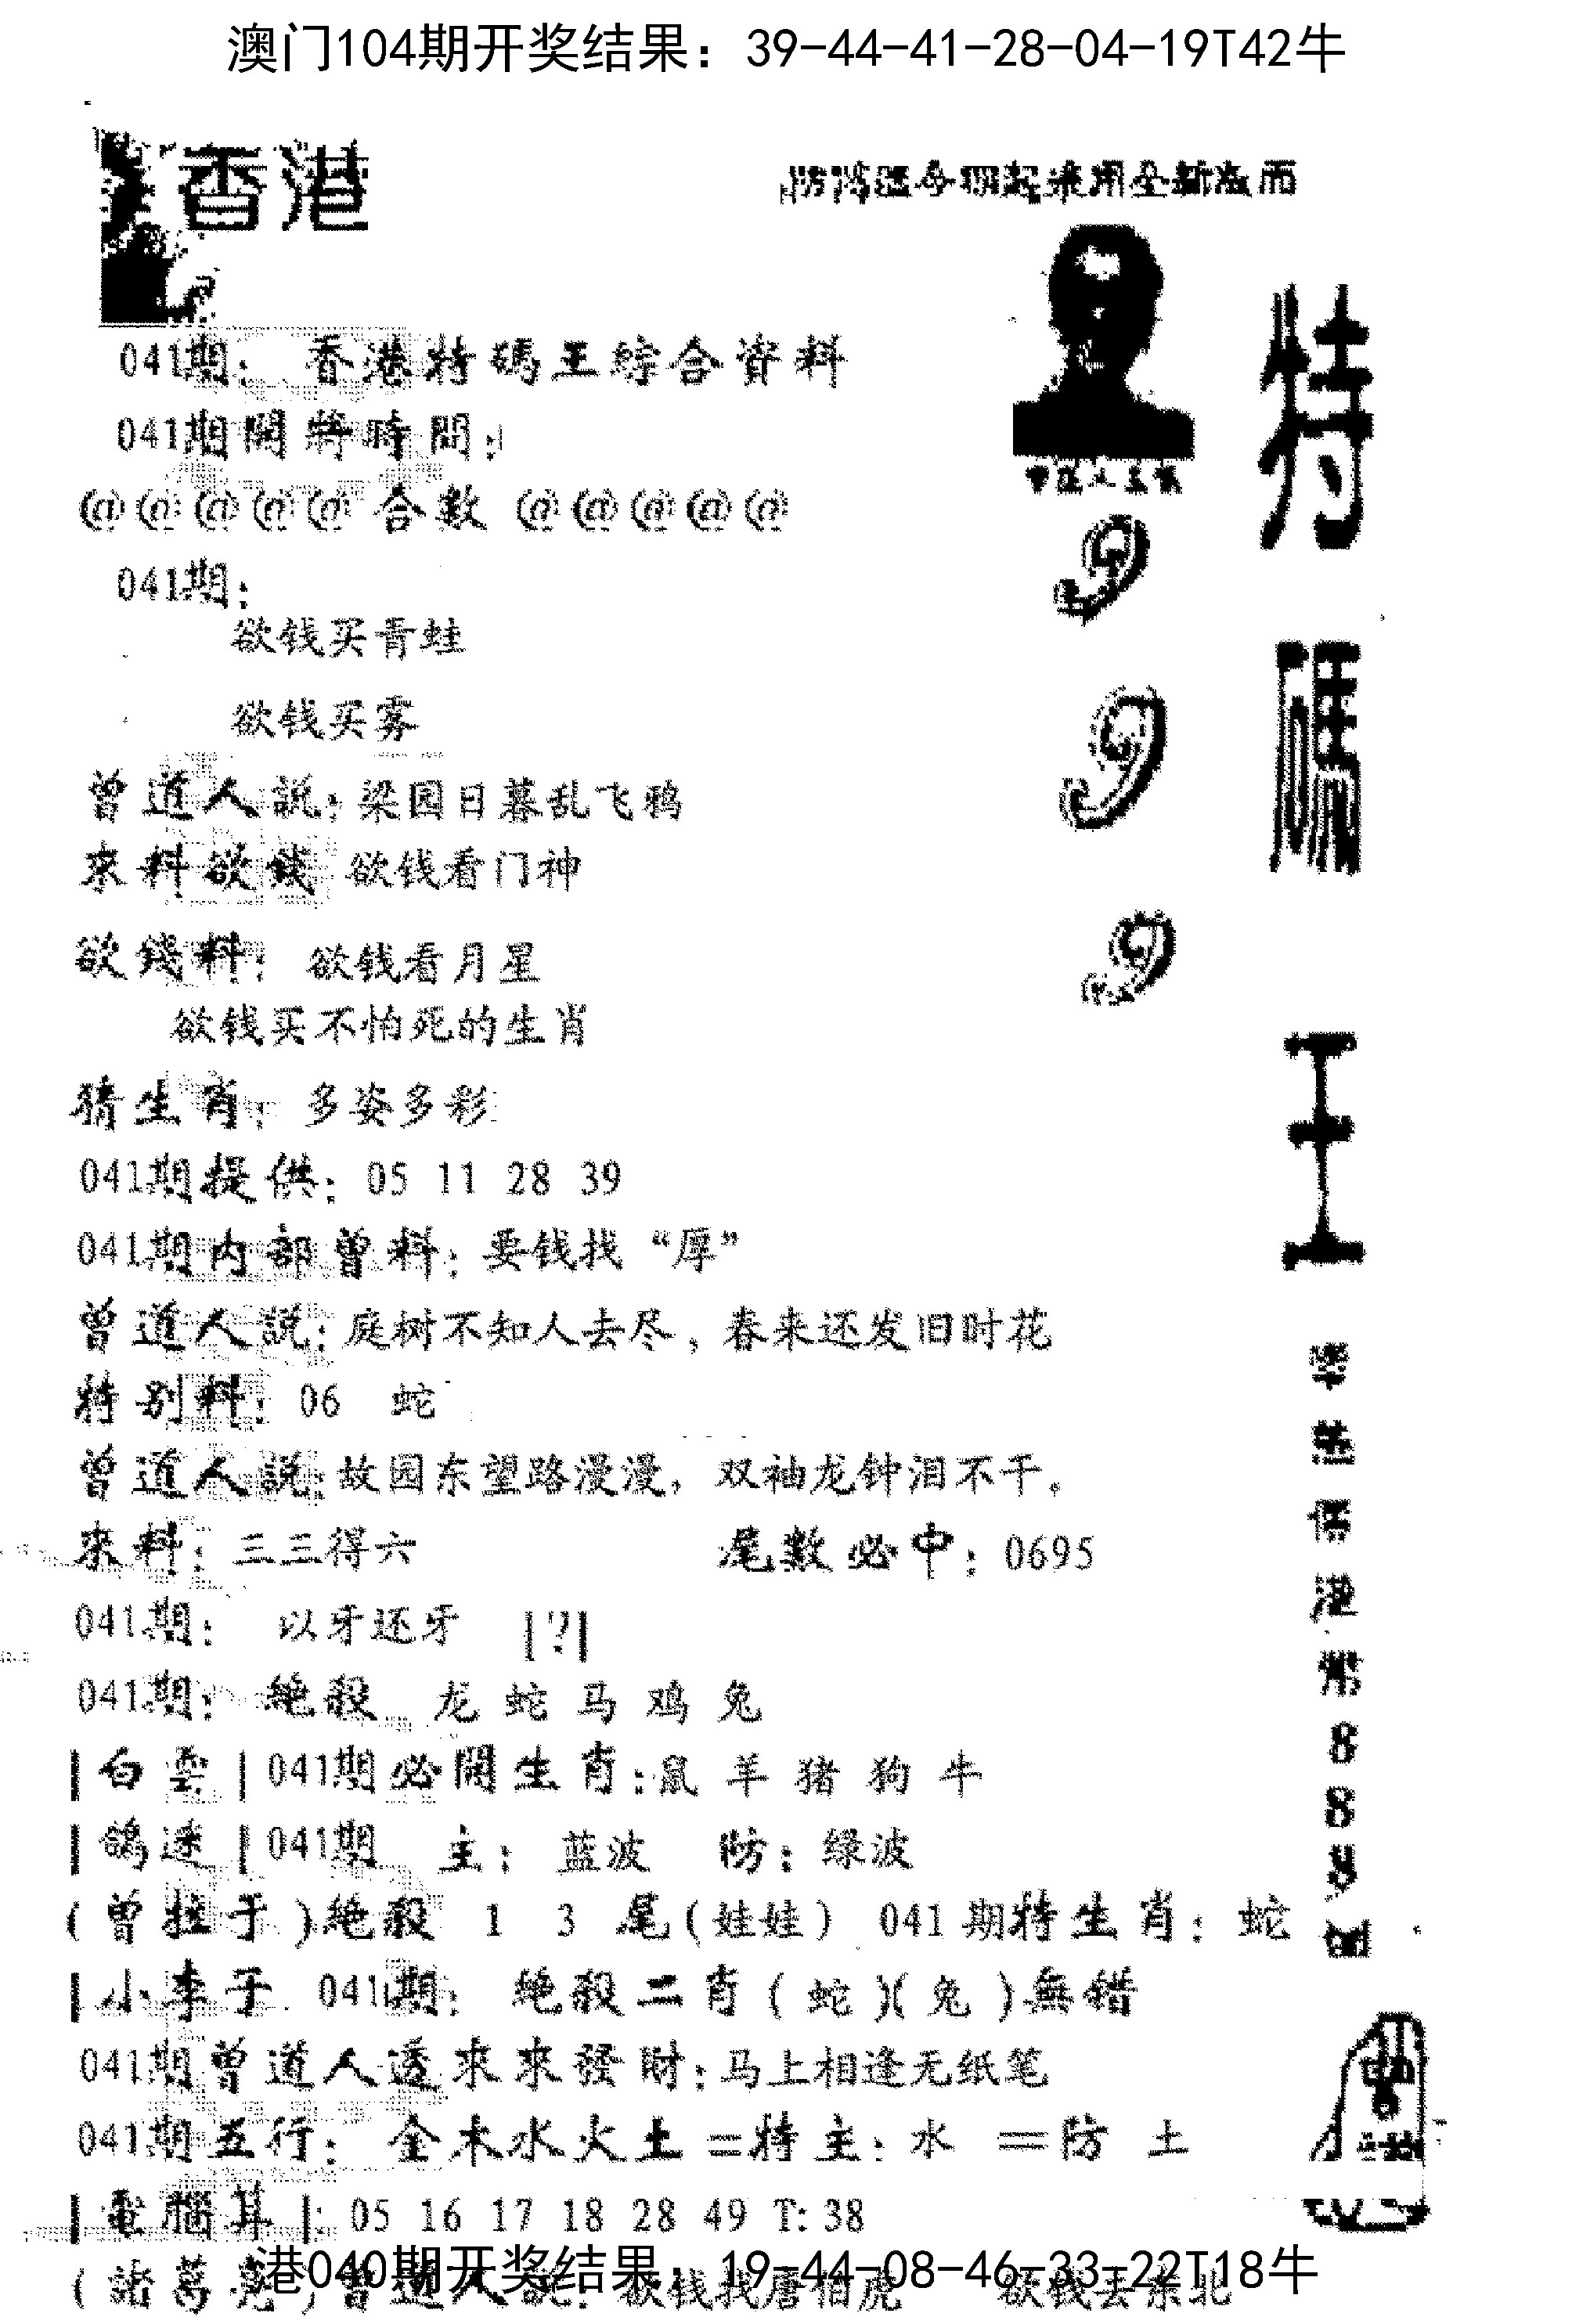 澳门104期开奖结果：39-44-41-28-04-19T42牛
香港
041期：香港特碼王綜合資料
041期開將時間：
@@@@@ 合數 @@@@@
041期：
欲钱买青蛙
欲钱买雾
曾道人說：梁园日暮乱飞鸦
來料欲錢 欲钱看门神
欲錢料：欲钱看月星
欲钱买不怕死的生肖
猜生肖：多姿多彩
041期提供：05 11 28 39
041期内部曾料：要钱找“厚”
曾道人説：庭树不知人去尽，春来还发旧时花
特别料：06 蛇
曾道人説：故园东望路漫漫，双袖龙钟泪不干。
來料：三三得六 尾數必中：0695
041期：以牙还牙 |?|
041期：绝殺 龙 蛇 马 鸡 兔
|白雲|041期必開生肖：鼠 羊 猪 狗 牛
|鴿迷|041期 主：蓝波 防：绿波
(曾拉于)绝殺 1 3 尾(娃娃) 041期特生肖：蛇
|小李于 041期：绝殺二肖(蛇)(兔)無错
041期曾道人透來來發財：马上相逢无纸笔
041期五行：金木水火土=特主：水 =防 土
|電腦算|：05 16 17 18 28 49 T:38
港040期开奖结果：19-44-08-46-33-22T18牛
特
碼
王
9
9
9
港
888